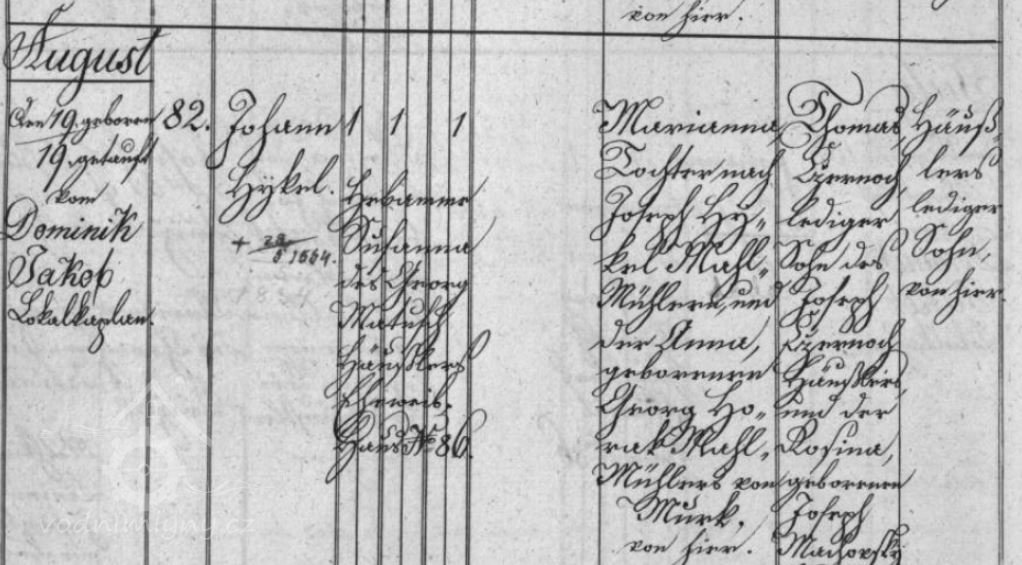 von hier.
August
den 19. geboren
19. getauft
vom
Dominik
Jakob
Lokalkaplan.
82.
Johann
Hykel.
1 1 1
Hebamme
Susanna
des Georg
Matusch
Häußlers
Eheweib.
Haus No 86.
Marianna,
Tochter nach
Joseph Hy-
kel Mahl-
Müllern, und
der Anna,
geborenen
Georg Ho-
rak Mahl-
Müllers von
Murk.
von hier.
Thomas
Czernoch,
lediger
Sohn des
Joseph
Czernoch
Häußlers,
und der
Rosina,
geborenen
Joseph
Machovský
Häuß-
lers
lediger
Sohn,
von hier.
vodnimlyny.cz